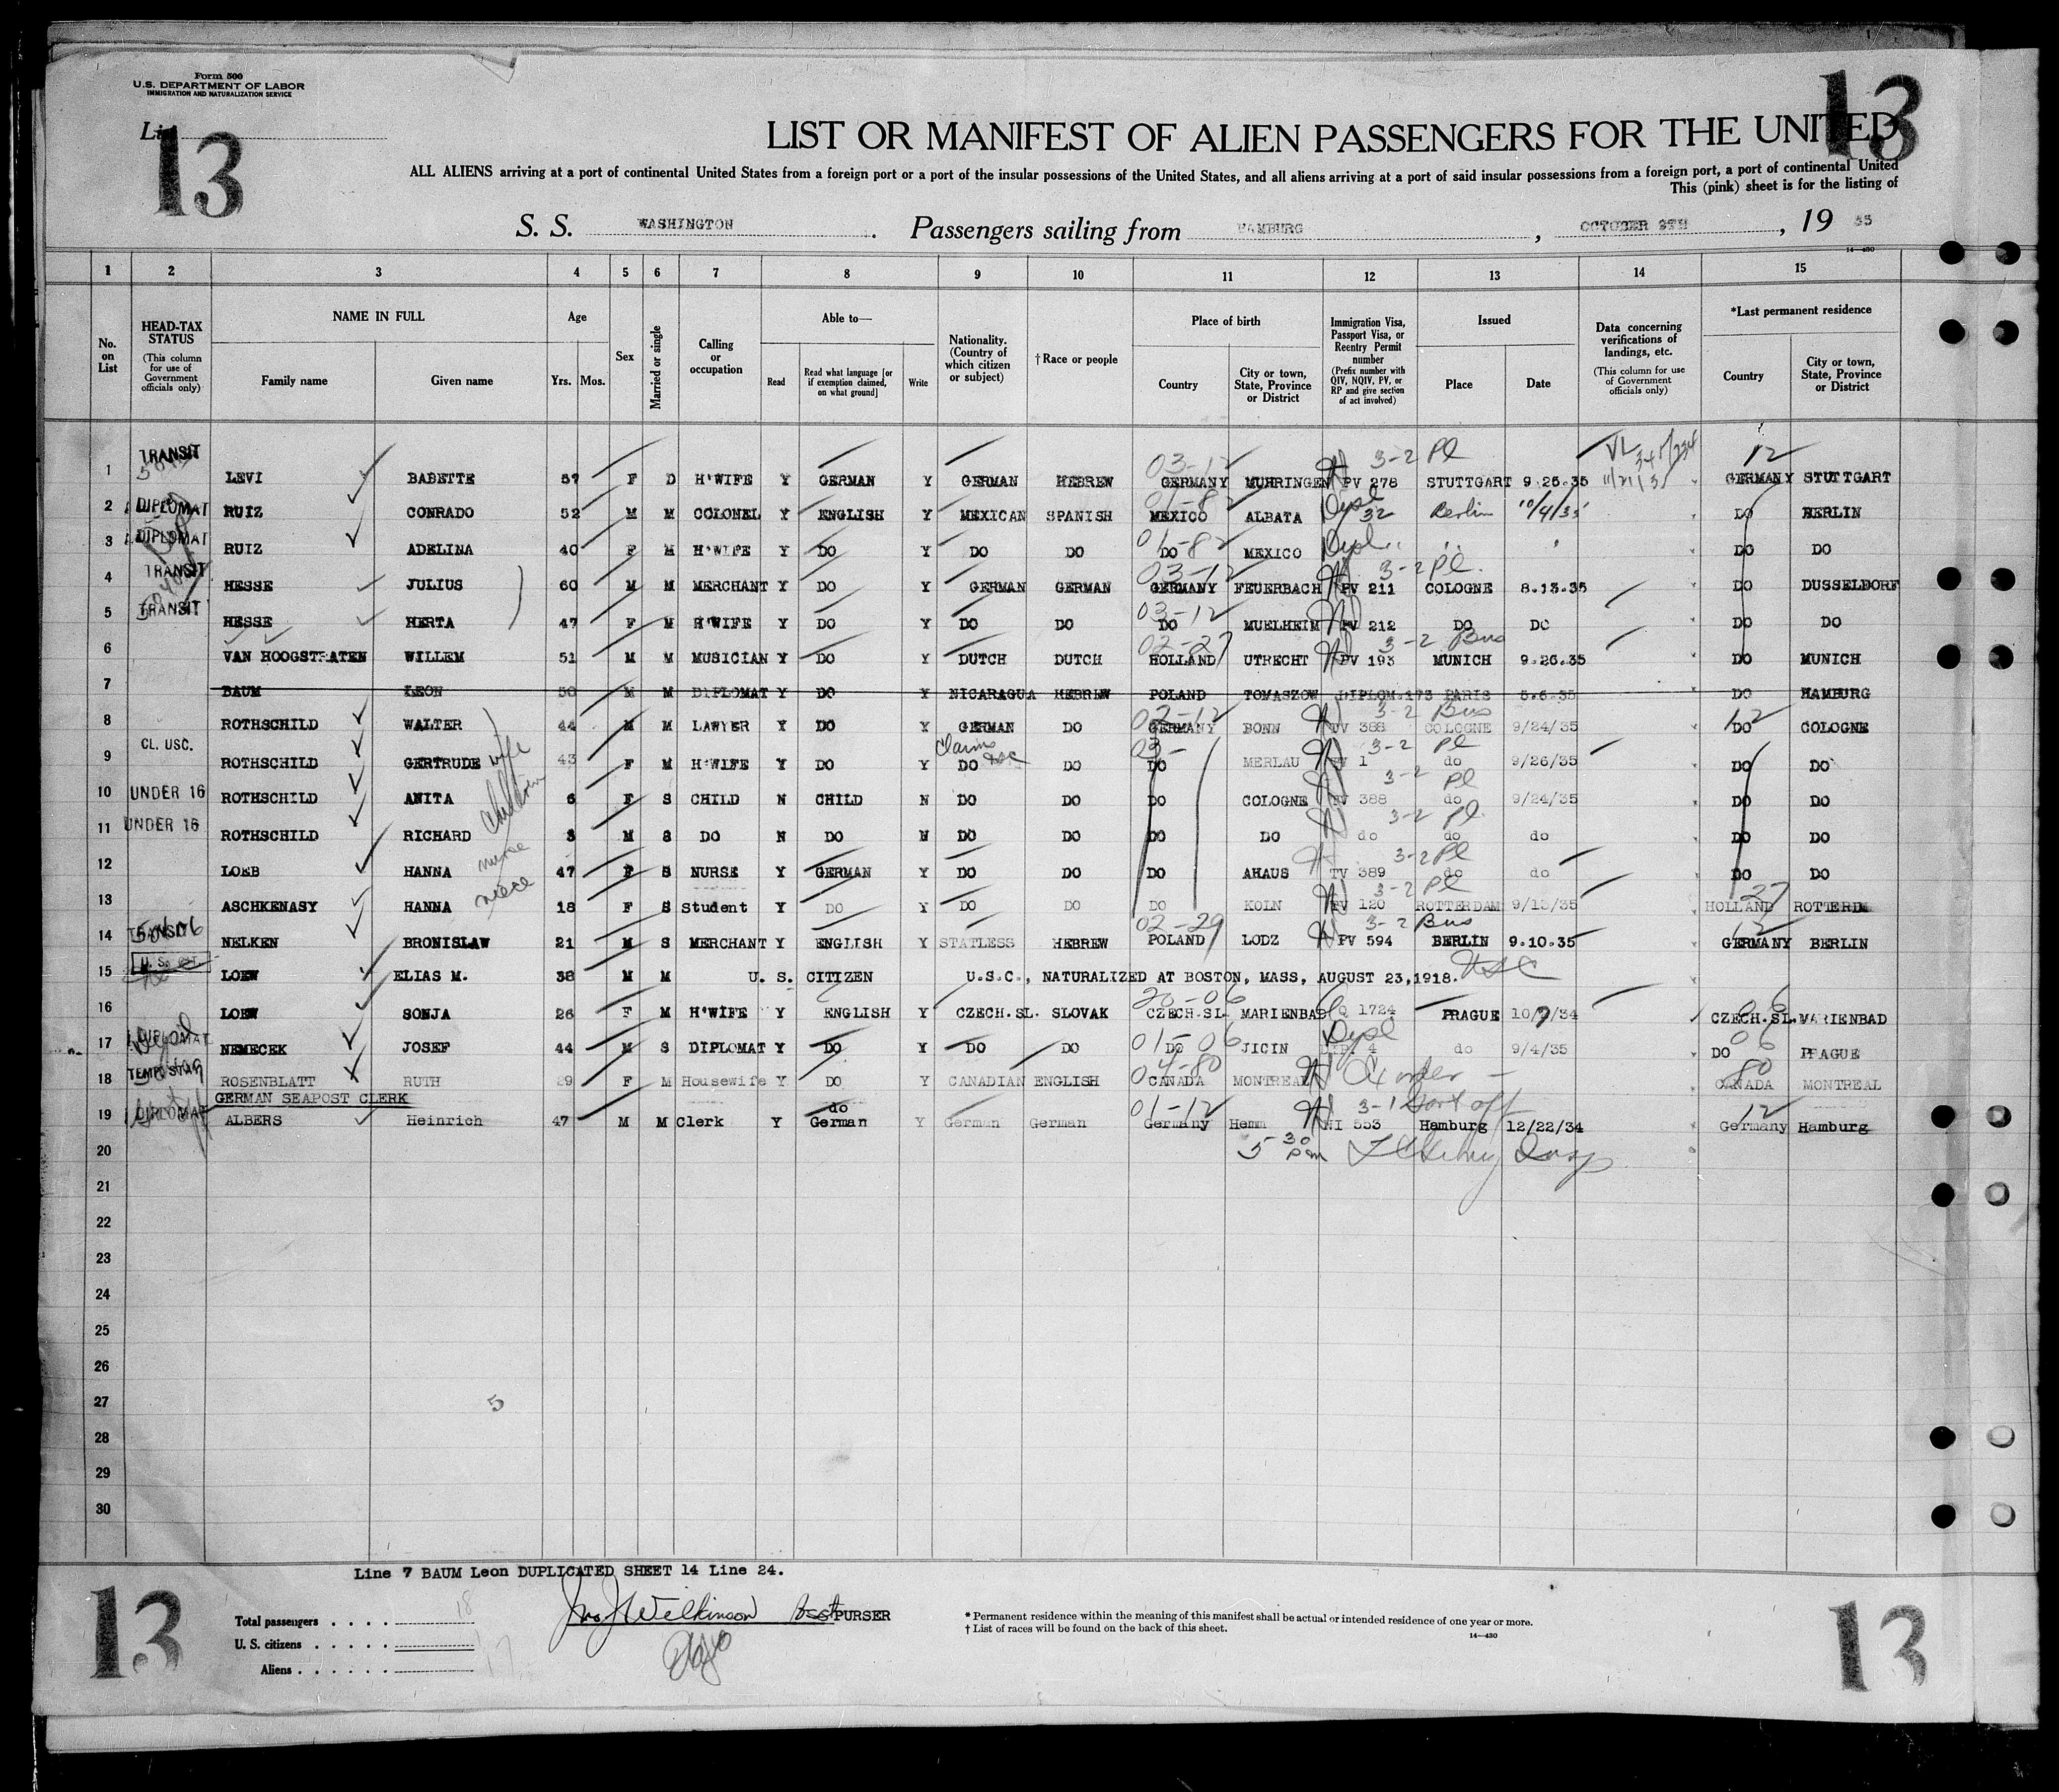 Form 500
U.S. DEPARTMENT OF LABOR
IMMIGRATION AND NATURALIZATION SERVICE
List
13
13
LIST OR MANIFEST OF ALIEN PASSENGERS FOR THE UNITED
ALL ALIENS arriving at a port of continental United States from a foreign port or a port of the insular possessions of the United States, and all aliens arriving at a port of said insular possessions from a foreign port, a port of continental United
This (pink) sheet is for the listing of
S. S. WASHINGTON. Passengers sailing from HAMBURG, OCTOBER 9TH, 19 35
14—430
1 2 3 4 5 6 7 8 9 10 11 12 13 14 15
No. on List
HEAD-TAX STATUS (This column for use of Government officials only)
NAME IN FULL Family name Given name
Age Yrs. Mos.
Sex
Married or single
Calling or occupation
Able to— Read Read what language [or if exemption claimed, on what ground] Write
Nationality. (Country of which citizen or subject)
†Race or people
Place of birth Country City or town, State, Province or District
Immigration Visa, Passport Visa, or Reentry Permit number (Prefix number with QIV, NQIV, PV, or RP and give section of act involved)
Issued Place Date
Data concerning verifications of landings, etc. (This column for use of Government officials only)
*Last permanent residence Country City or town, State, Province or District
TRANSIT 03-12 3-2 Pl 12
1 LEVI BABETTE 57 F D H'WIFE Y GERMAN Y GERMAN HEBREW GERMANY MUHRINGEN PV 278 STUTTGART 9.25.35 11/21/35 GERMANY STUTTGART
2 DIPLOMAT RUIZ CONRADO 52 M M COLONEL Y ENGLISH Y MEXICAN SPANISH 01-82 MEXICO ALBATA Dipl 32 Berlin 10/4/35 DO BERLIN
3 DIPLOMAT RUIZ ADELINA 40 F M H'WIFE Y DO Y DO DO 01-82 DO MEXICO Dipl " " DO DO
4 TRANSIT HESSE JULIUS 60 M M MERCHANT Y DO Y GERMAN GERMAN 03-12 GERMANY FEUERBACH PV 211 3-2 Pl. COLOGNE 8.13.35 DO DUSSELDORF
5 TRANSIT HESSE HERTA 47 F M H'WIFE Y DO Y DO DO 03-12 DO MUELHEIM PV 212 DO DO DO DO
6 VAN HOOGSTRATEN WILLEM 51 M M MUSICIAN Y DO Y DUTCH DUTCH 02-27 HOLLAND UTRECHT PV 193 3-2 Bus MUNICH 9.26.35 DO MUNICH
7 BAUM LEON 50 M M DIPLOMAT Y DO Y NICARAGUA HEBREW POLAND TOMASZOW DIPLOM.173 PARIS 5.6.35 DO HAMBURG
8 ROTHSCHILD WALTER 44 M M LAWYER Y DO Y GERMAN DO 02-12 GERMANY BONN TV 388 3-2 Bus COLOGNE 9/24/35 12 DO COLOGNE
9 CL. USC. ROTHSCHILD GERTRUDE wife 43 F M H'WIFE Y DO Y Claims USC DO DO 03- DO MERLAU TV 1 3-2 Pl do 9/26/35 DO DO
10 UNDER 16 ROTHSCHILD ANITA children 6 F S CHILD N CHILD N DO DO DO COLOGNE TV 388 3-2 Pl do 9/24/35 DO DO
11 UNDER 16 ROTHSCHILD RICHARD 3 M S DO N DO N DO DO DO DO do 3-2 Pl do do DO DO
12 LOEB HANNA nurse 47 F S NURSE Y GERMAN Y DO DO DO AHAUS TV 389 3-2 Pl do do DO DO
13 ASCHKENASY HANNA niece 18 F S Student Y DO Y DO DO DO KOLN PV 120 3-2 Pl ROTTERDAM 9/13/35 27 HOLLAND ROTTERDM
14 TRANSIT NELKEN BRONISLAW 21 M S MERCHANT Y ENGLISH Y STATLESS HEBREW 02-29 POLAND LODZ PV 594 3-2 Bus BERLIN 9.10.35 12 GERMANY BERLIN
15 LOEW ELIAS M. 38 M M U. S. CITIZEN U.S.C., NATURALIZED AT BOSTON, MASS, AUGUST 23,1918. USC
16 LOEW SONJA 26 F M H'WIFE Y ENGLISH Y CZECH.SL. SLOVAK 20-06 CZECH.SL. MARIENBAD Q 1724 PRAGUE 10/9/34 06 CZECH.SL. MARIENBAD
17 DIPLOMAT NEMECEK JOSEF 44 M S DIPLOMAT Y DO Y DO DO 01-06 DO JICIN Dipl 4 do 9/4/35 06 DO PRAGUE
18 TEMP. STAY ROSENBLATT RUTH 29 F M Housewife Y DO Y CANADIAN ENGLISH 04-80 CANADA MONTREAL order — 80 CANADA MONTREAL
GERMAN SEAPOST CLERK
19 DIPLOMAT ALBERS Heinrich 47 M M Clerk Y do German Y German German 01-12 Germany Hemm NI 553 3-1 Hamburg 12/22/34 12 Germany Hamburg
20 5 30 pm
21
22
23
24
25
26
27 5
28
29
30
Line 7 BAUM Leon DUPLICATED SHEET 14 Line 24.
13
Total passengers 18
U. S. citizens 1
Aliens 17
Jno J Wilkinson Asst PURSER
* Permanent residence within the meaning of this manifest shall be actual or intended residence of one year or more.
† List of races will be found on the back of this sheet.
14—430
13